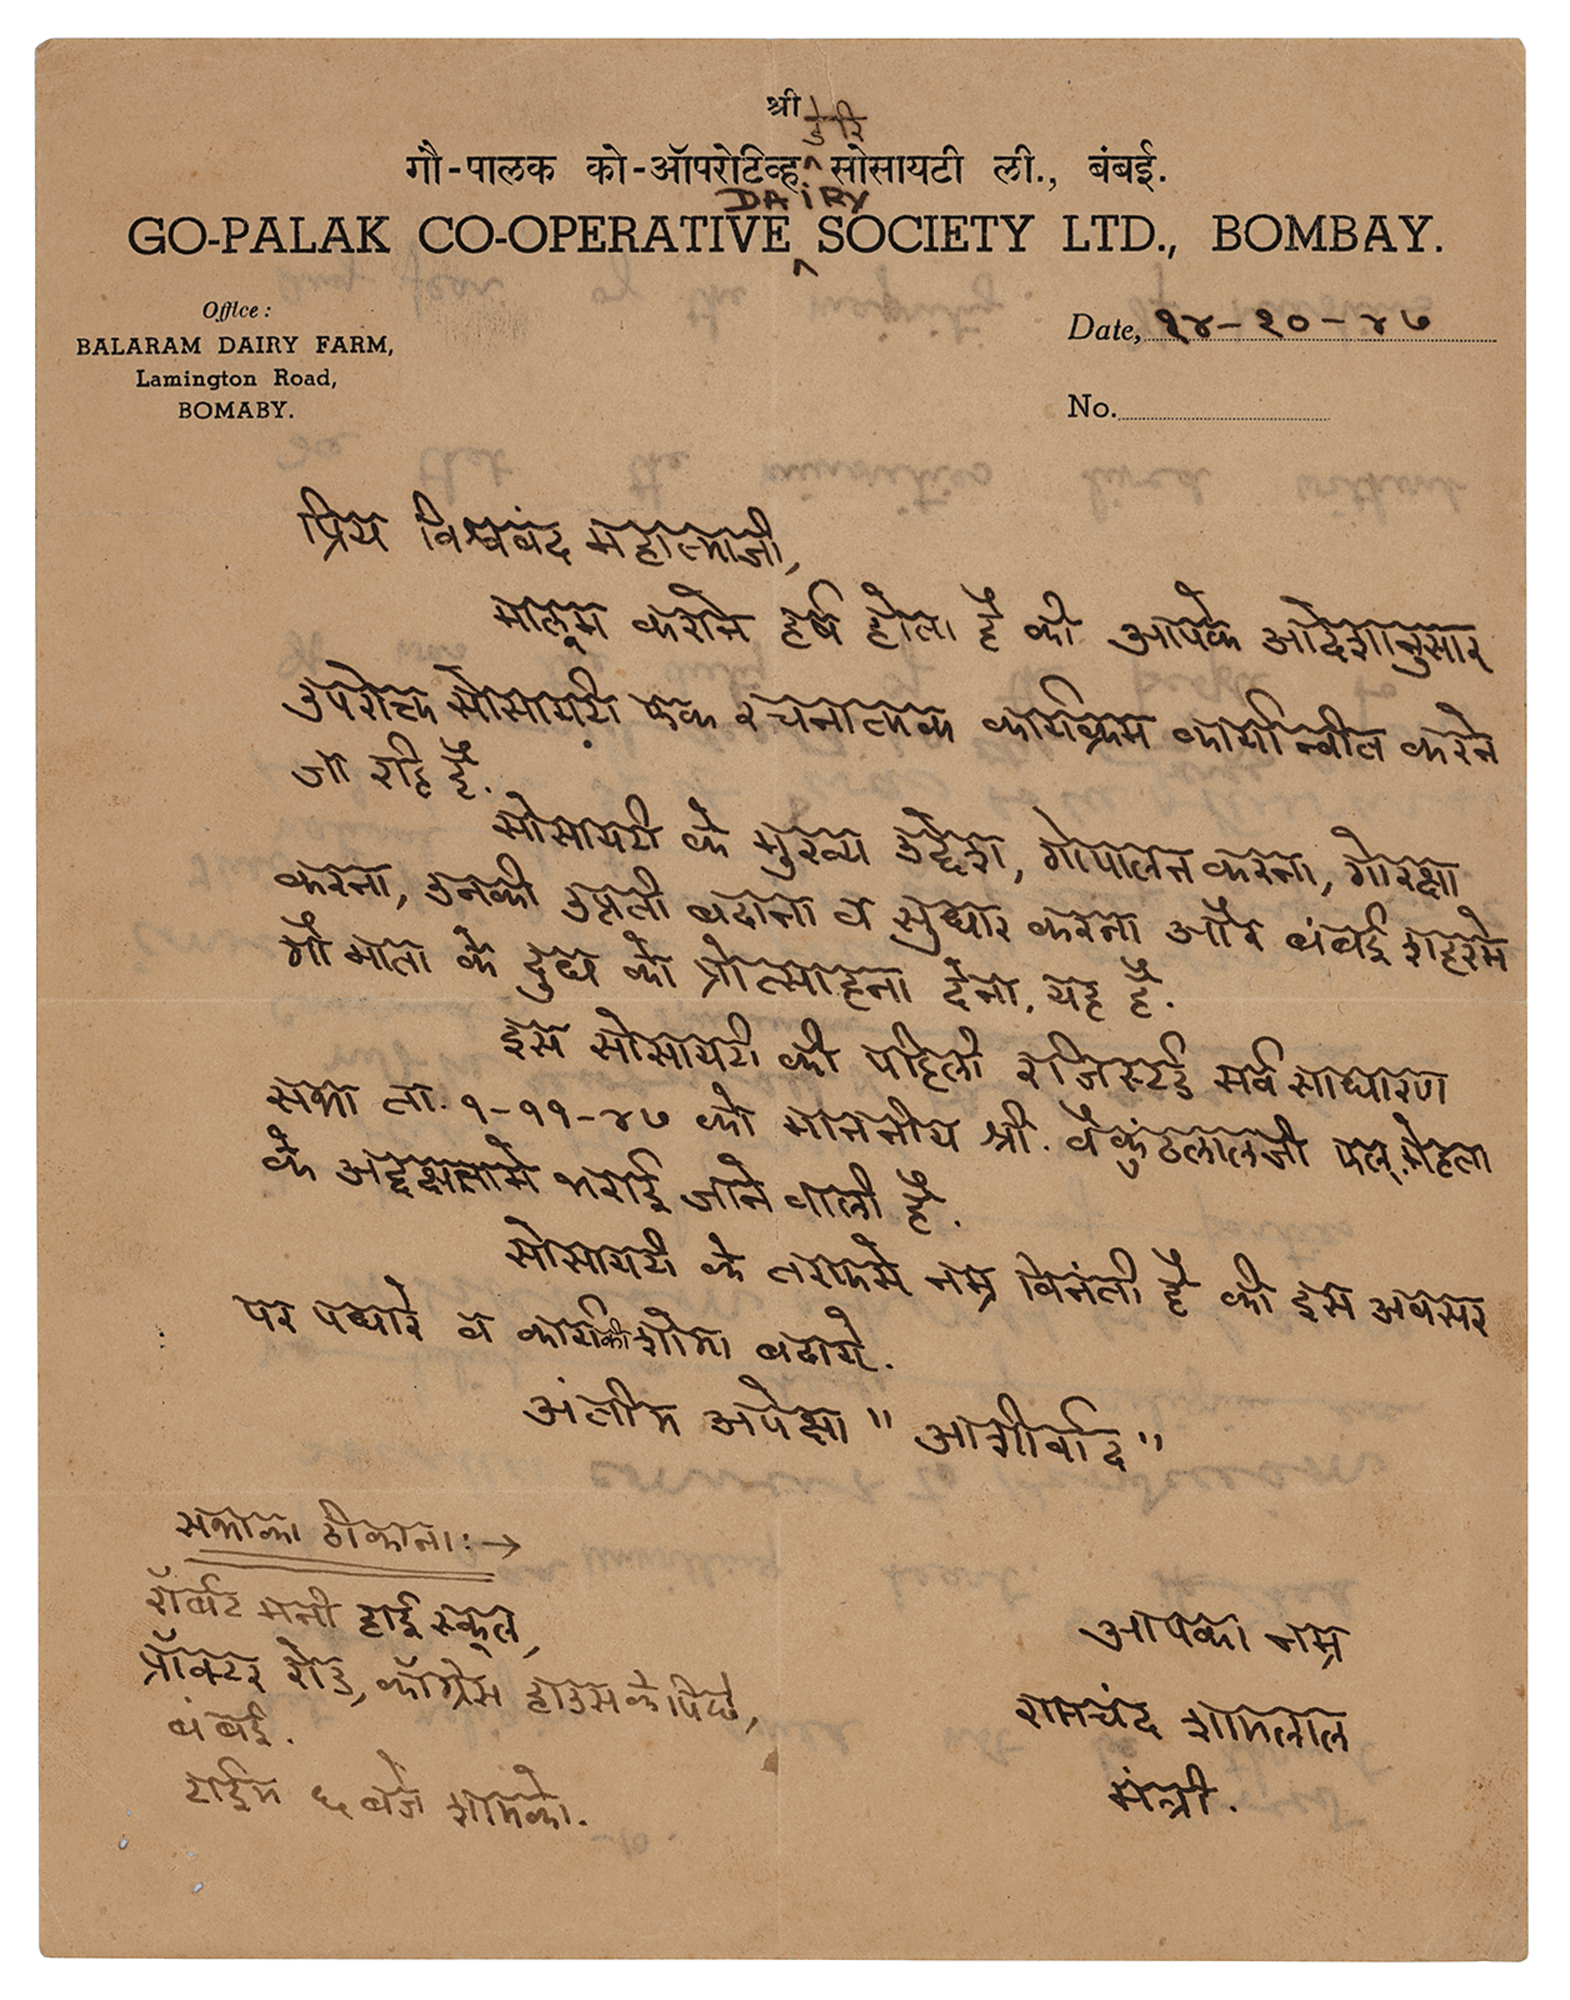 श्री
डेरि
गौ-पालक को-ऑपरेटिव्ह ^ सोसायटी ली., बंबई.
DAIRY
GO-PALAK CO-OPERATIVE ^ SOCIETY LTD., BOMBAY.
Office:
BALARAM DAIRY FARM,
Lamington Road,
BOMABY.
Date, १४-१०-४७
No.
प्रिय विश्ववंद महात्माजी,
मालूम कराने हर्ष होता है की आपके आदेशानुसार
उपरोक्त सोसायटी एक रचनात्मक कार्यक्रम कार्यान्वीत करने
जा रहि है.
सोसायटी के मुख्य उद्देश, गोपालन करना, गोरक्षा
करना, उनकी उन्नती बढाना व सुधार करना और बंबई शहरमे
गौ माता के दुध को प्रोत्साहना देना, यह है.
इस सोसायटी की पहिली रजिस्टर्ड सर्व साधारण
सभा ता. १-११-४७ को माननीय श्री. वैकुंठलालजी एल. मेहता
के अद्दक्षतामे भराई जाने वाली है.
सोसायटी के तरफसे नम्र विनंती है की इस अवसर
पर पधारे व कार्यकी शोभा बढाये.
अंतीम अपेक्षा "आशीर्वाद"
सभाका ठीकाना:→
रॉबर्ट मनी हाई स्कूल,
प्रॉक्टर रोड, कॉंग्रेस हाउसके पिछे,
बंबई.
टाईम ६ बजे शामको.
आपका नम्र
रामचंद शामलाल
मंत्री.